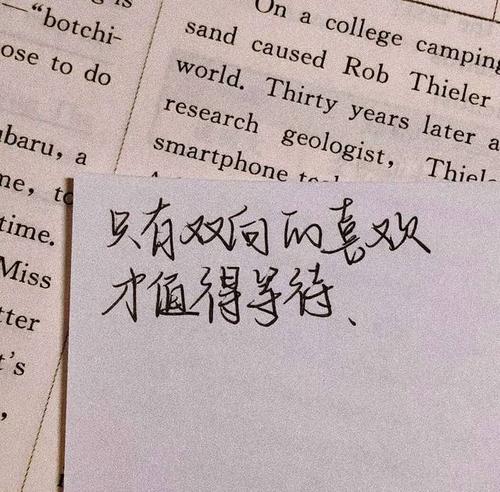 —“botchi-
ose to do
ubaru, a
me, to
time.
Miss
tter
t's
,
On a college camping
sand caused Rob Thieler
world. Thirty years later a
research geologist, Thiel
smartphone
只有双向的喜欢
才值得等待、